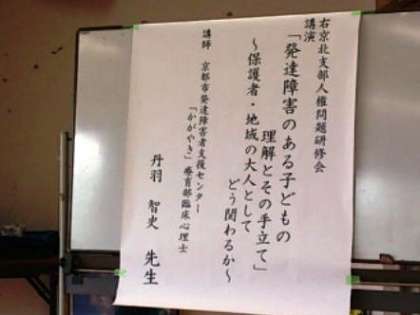 右京北支部人権問題研修会
講演
「発達障害のある子どもの
理解とその手立て」
～保護者・地域の大人として
どう関わるか～
講師 京都市発達障害者支援センター
「かがやき」療育部臨床心理士
丹羽 智史 先生